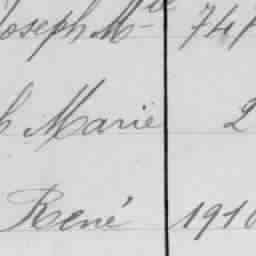 Joseph M^lle 741
h Marie 2
René 1910